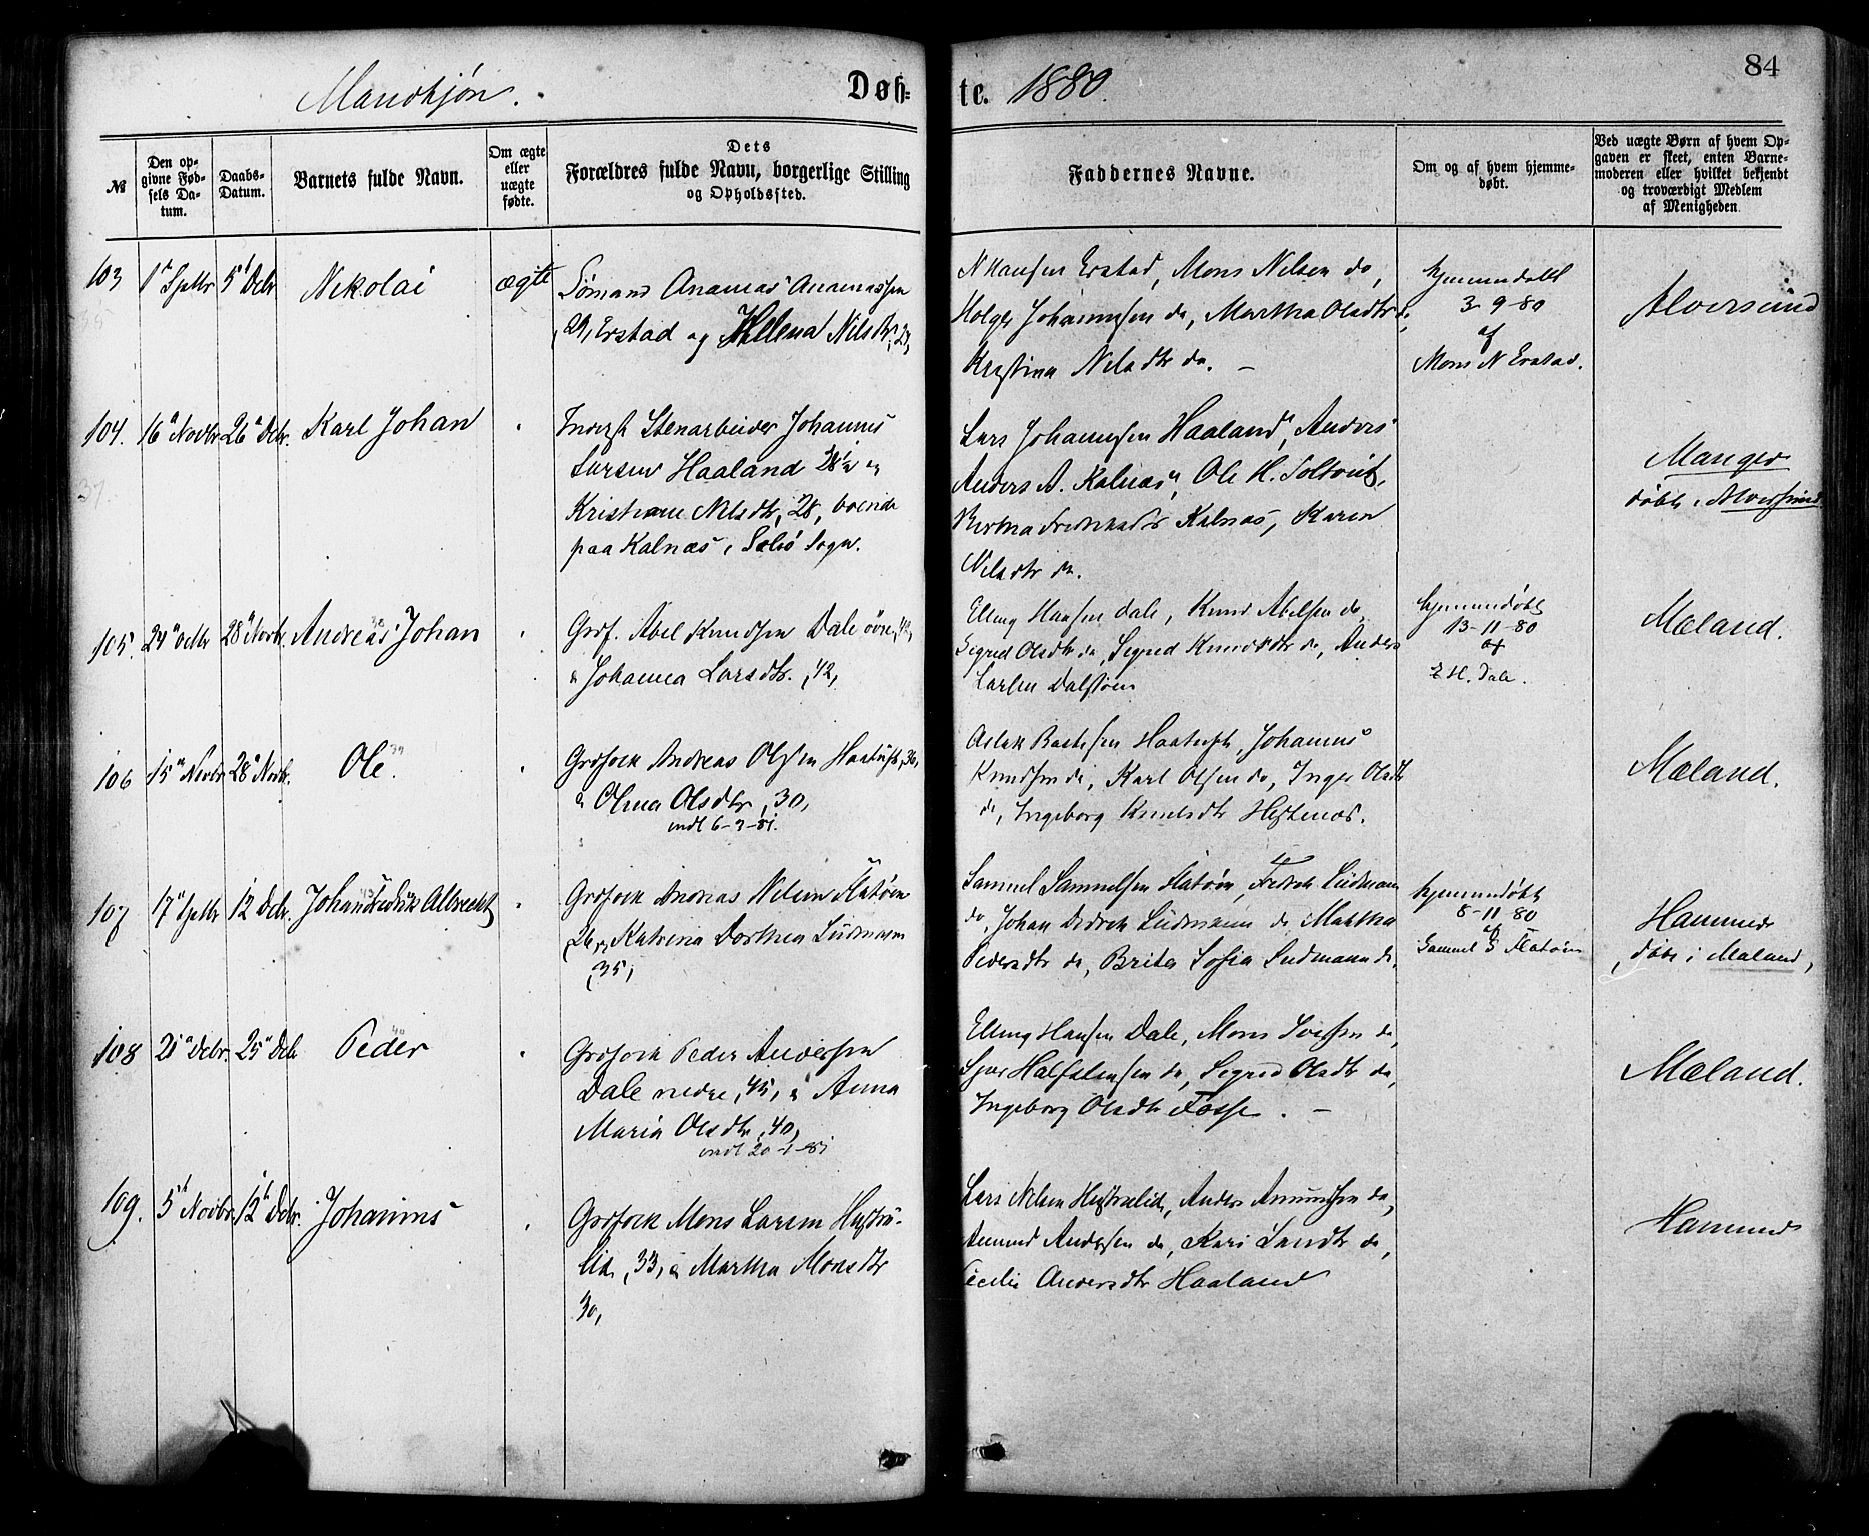 84
Mandkjøn. Døb- te. 1880.
№
Den op-
givne Fød-
sels Da-
tum.
Daabs-
Datum.
Barnets fulde Navn.
Om ægte
eller
uægte
fødte.
Dets
Forældres fulde Navn, borgerlige Stilling
og Opholdssted.
Faddernes Navne.
Om og af hvem hjemme-
døbt.
Ved uægte Børn af hvem Op-
gaven er skeet, enten Barne-
moderen eller hvilket bekjendt
og troværdigt Medlem
af Menigheden.
103 1 Septbr 5 Debr Nikolai ægte
Sømand Ananias Ananiassen
29, Erstad og Helena Nilsdtr, 29,
N Hansen Erstad, Mons Nilsen do,
Holger Johannesen do, Martha Olsdtr do,
Kristina Nilsdtr do. –
hjemmedøbt
3-9-80
af
Mons N Erstad.
Alversund
104. 16 Novbr 26 Debr. Karl Johan
Inderst Stenarbeider Johannes
Larsen Haaland 28½ og
Kristiane Nilsdtr, 28, boende
paa Kalnæs i Sæbø Sogn.
Lars Johannesen Haaland, Anders
Anders A. Kalnæs, Ole H. Toltveit,
Kalnæs, Karen
Nilsdtr do.
Manger
døbt i Alversund
105. 24 28 Novbr. Andreas Johan
38
Grdf. Abel Knudsen Dale øvre, 42,
& Johanna Larsdtr. , 42,
Elling Hansen Dale, Knud Abelsen do,
Sigrid Olsdtr do, Sigrid Knudsdtr do, Anders
Larsen Dalstøen
hjemmedøbt
13-11-80
af
E H. Dale.
Mæland.
106 15 Novbr 28 Novbr. Ole.
39
Grdfolk Andreas Olsen Haatuft, 30,
& Olina Olsdtr , 30,
indl 6-3-81.
Aslak Bastesen Haatuft, Johannes
Knudsen do, Karl Olsen do, Inger Olsdtr
do, Ingeborg Knudsdtr Hestenes.
Mæland.
107 17 Septbr 12 Debr. Johan Fredrik Albrecht
Grdfolk Andreas Nilsen Flatøen
26, & Katrina Dorthea Lüdmann
, 35,
Samuel Samuelsen Flatøen, Fredrik Lüdmann
do, Johan Didrik Lüdmann do, Martha
Pedersdtr do, Brita Sofia Lüdmann do.
hjemmedøbt
8-11-80
af
Samuel S Flatøen
Hammer
døbt i Mæland,
108 21 Debr. 25 Deb Peder
40
Grdfolk Peder Andersen
Dale nedre, 45, & Anna
Maria Olsdtr, 40,
indl 20-1-81
Elling Hansen Dale, Mons Iversen do,
Halfstensen do, Sigrid Olsdtr do,
Ingeborg Olsdtr Fosse. –
Mæland.
109. 5 Novbr. 12 Debr. Johannes
Grdfolk Mons Larsen Hestra-
lid, 33, & Martha Monsdtr
30,
Lars Nilsen Hestralid, Anders Amundsen do,
Amund Andersen do, Kari do,
Cecilie Andersdtr Haaland
Hammer